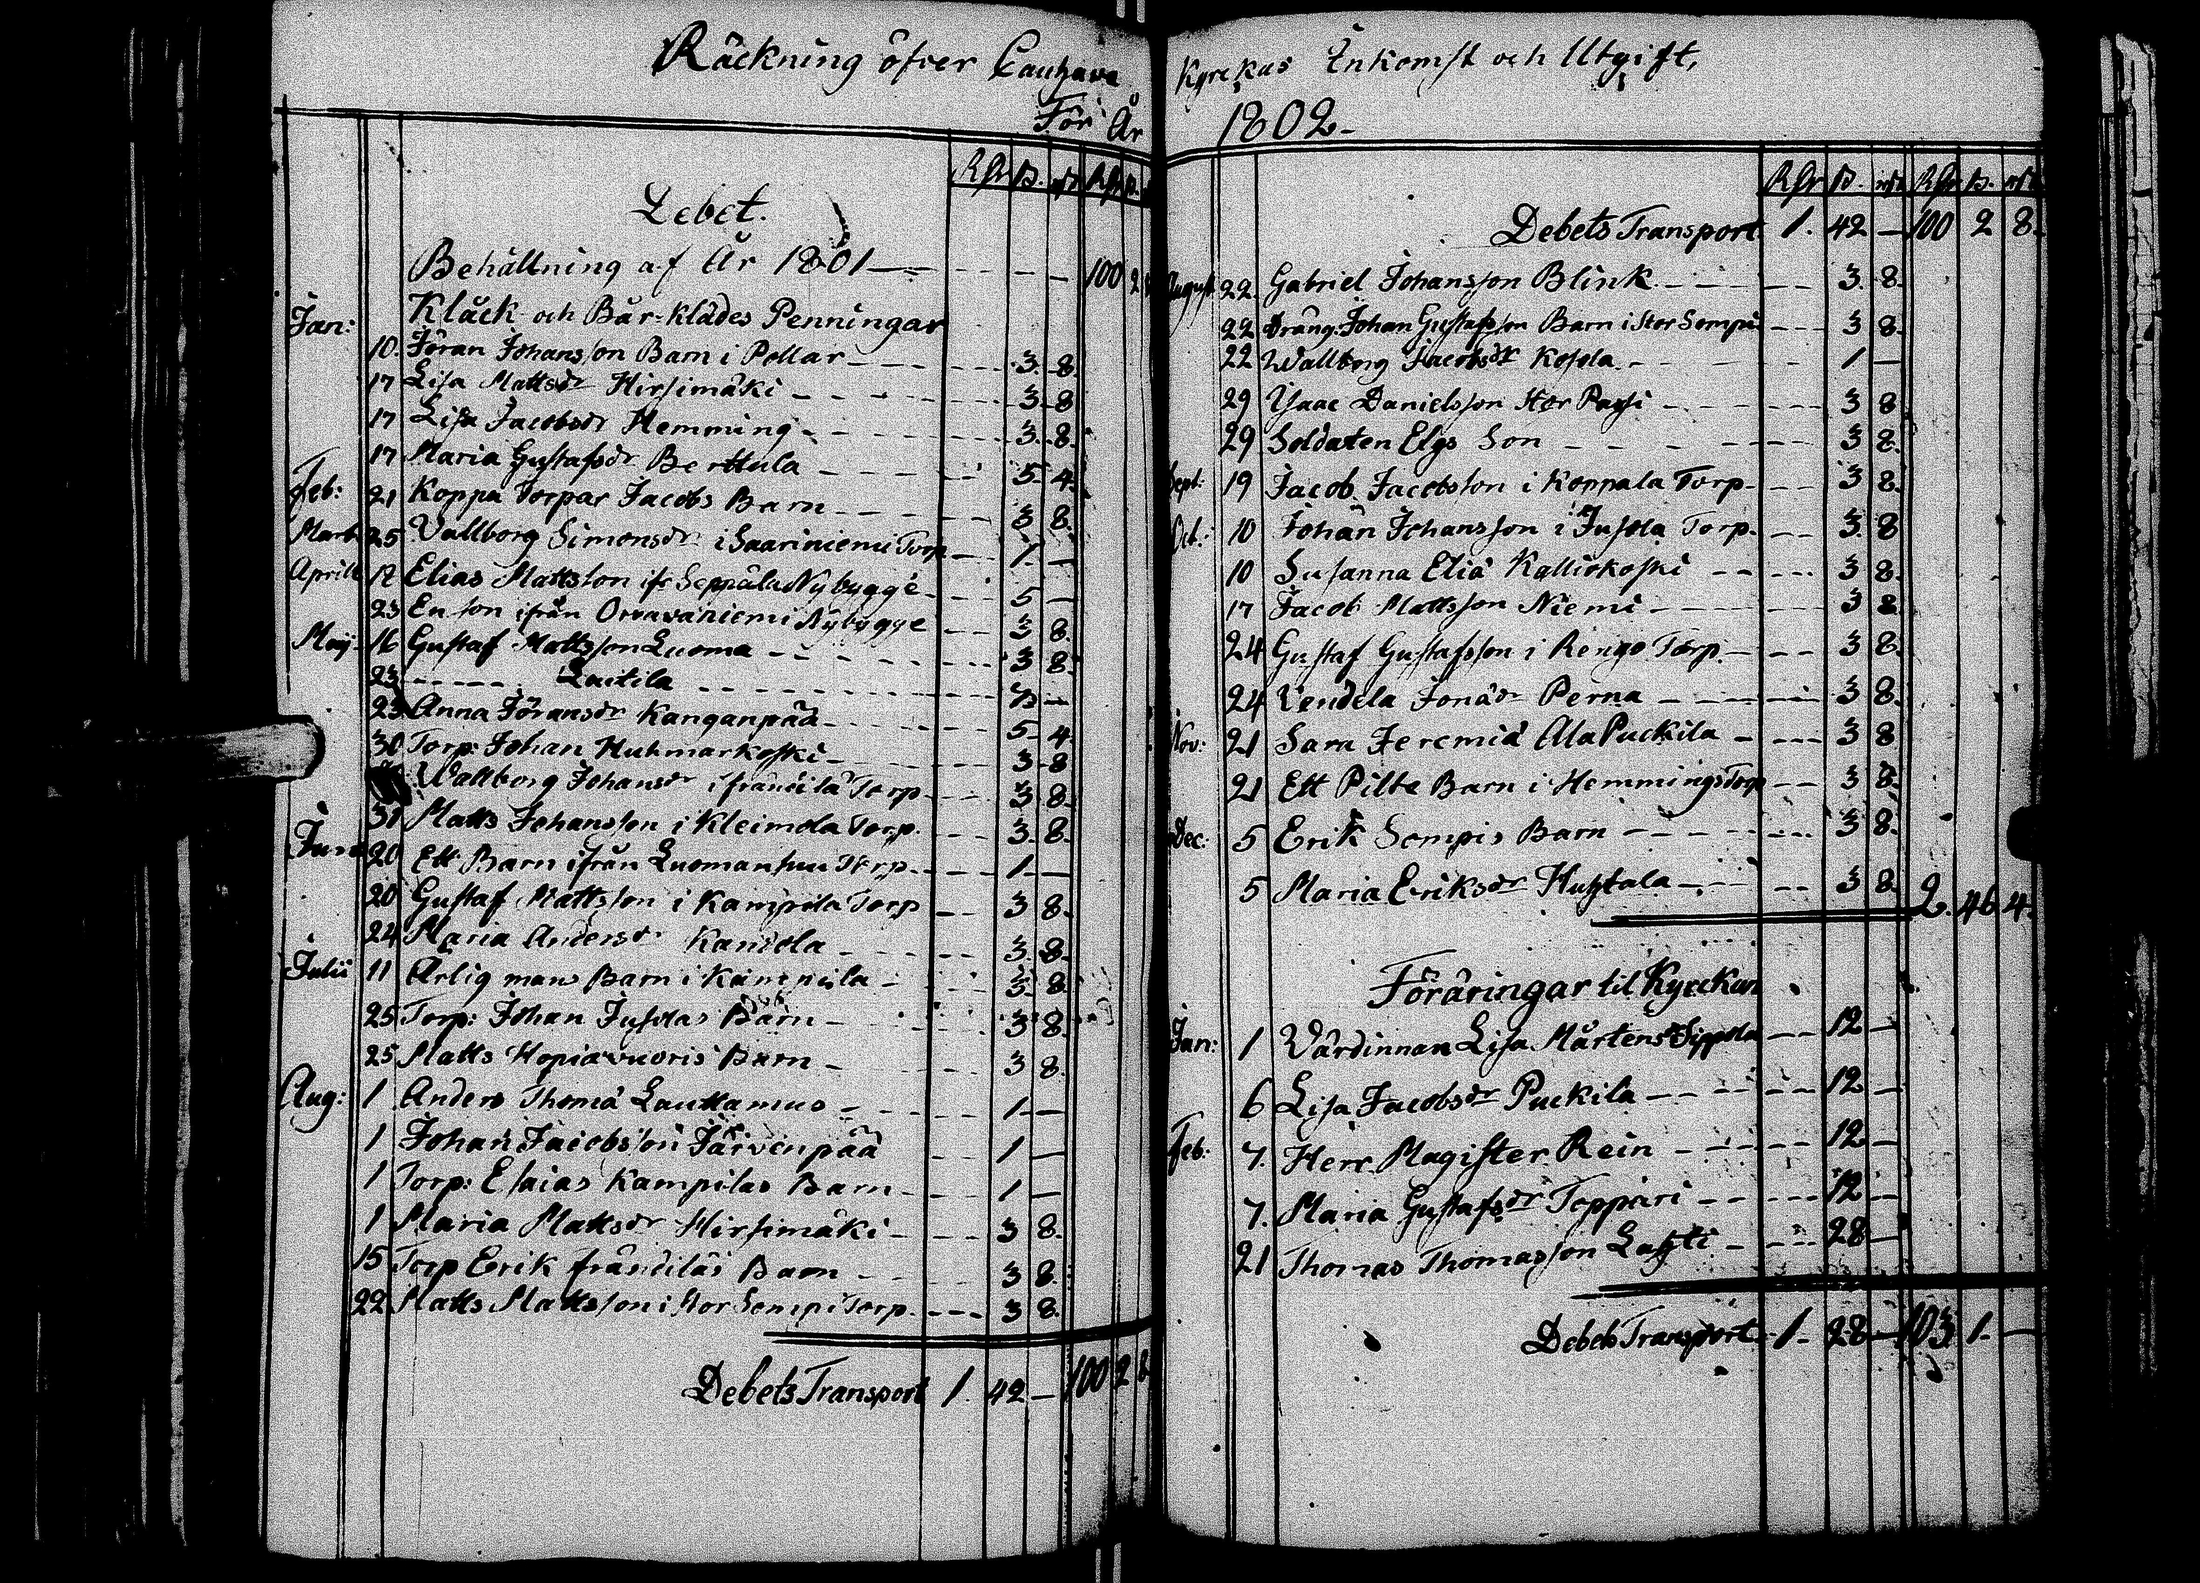 Räckning öfver Cauhava Kyrckas Inkomst och Utgift,
För År 1802-
Rdr ß. rst Rdr ß.
Debet.
Behållning af År 1801 — 100 2
Klåck- och Bår-klädes Penningar
Jan: 10. Jöran Johansson Barn i Pollar 3. 8.
17 Lisa Mattsdr Hirsimäki 3 8
17 Lisa Jacobsdr Hemming 3. 8.
17 Maria Gustafsdr Berttula 5 4.
Feb: 21 Koppa Torpar Jacobs Barn 3 8.
Mart: 25 Vallborg Simonsdr i Saariniemi Torp 1. —
Aprill 12 Elias Mattsson ifr Seppälä Nybygge 5 —
23 En son ifrån Orravaniemi Nybygge 3 8.
Maij 16 Gustaf Mattsson Luoma 3 8.
23 — Laitila
23 Anna Jöransdr Kanganpää 5 4.
30 Torp: Johan Huhmarkoski 3 8
Wallborg Johansdr i frändilä Torp 3 8.
31 Matts Johansson i Kleimola Torp. 3. 8.
20 Ett Barn ifrån Luomansuu Torp. 1 —
20 Gustaf Mattsson i Kampila Torp 3 8.
24 Maria Andersdr Kaniola 3. 8.
Julii 11 Ärlig mans Barn i Kampila 3. 8.
25 Torp: Johan Jussilas Barn 3 8.
25 Matts Hopiavuoris Barn 3 8.
Aug: 1 Anders Thomä Lauttamus 1. —
1 Johan Jacobsson Järvenpää 1 —
1 Torp: Esaias Kampilas Barn 1 —
1 Maria Mattsdr Hirsimäki 3 8.
15 Torp Erik frändiläs Barn 3 8.
22 Matts Mattsson i Stor Sompi Torp. 3 8.
Debets Transport 1. 42 — 100 2 8
Rdr ß. rst Rdr ß. rst
Debets Transport 1. 42 — 100 2 8.
August 22. Gabriel Johansson Blink 3. 8.
22 Dräng: Johan Gustafsson Barn i Stor Sompi 3 8.
22 Wallborg Jacobsdr Kosola 1 —
29 Ysaac Danielsson Hor Passi 3 8
29 Soldaten Elgs Son 3 8.
Sept: 19 Jacob Jacobsson i Koppala Torp 3 8.
Oct: 10 Johan Johansson i Jussila Torp. 3. 8
10 Susanna Eliä Kalliokoski 3 8.
17 Jacob Mattsson Niemi 3 8
24 Gustaf Gustafsson i Rengo Torp. 3 8.
24 Vendela Jonädr Perna 3 8.
Nov: 21 Sara Jeremiä Ala Puckila 3 8
21 Ett Pilte Barn i Hemmings Torp 3 8.
Dec: 5 Erik Sompis Barn 3 8.
5 Maria Eriksdr Huhtala 3 8. 2. 46 4.
Föräringar til Kyrckan
Jan: 1 Värdinnan Lisa Mårtensdr Sippola 12 —
6 Lisa Jacobsdr Puckila 12 —
Feb: 7. Herr Magister Rein 12 —
7. Maria Gustafsdr Toppari 12 —
21 Thomas Thomasson Lahti 28 —
Debets Transport 1. 28 — 103 1. —